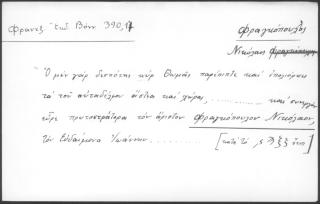 Φραντζ. Ἐκδ. Βόνν. 390,17
Φραγκόπουλος
Νικόλαος
Ὁ μὲν γὰρ δεσπότης κὺρ Θωμᾶς παρέπεσε καὶ ἐπολιόρκει
τὰ τοῦ αὐταδέλφου ἄστεα καὶ χώρας, .......... καὶ συνεργὸν
εὗρε πρωτοστράτορα τὸν ἄριστον Φραγκόπουλον Νικόλαον,
τὸν Εὐδαίμονα Ἰωάννην ........ [κατὰ τὸ ἔτει]